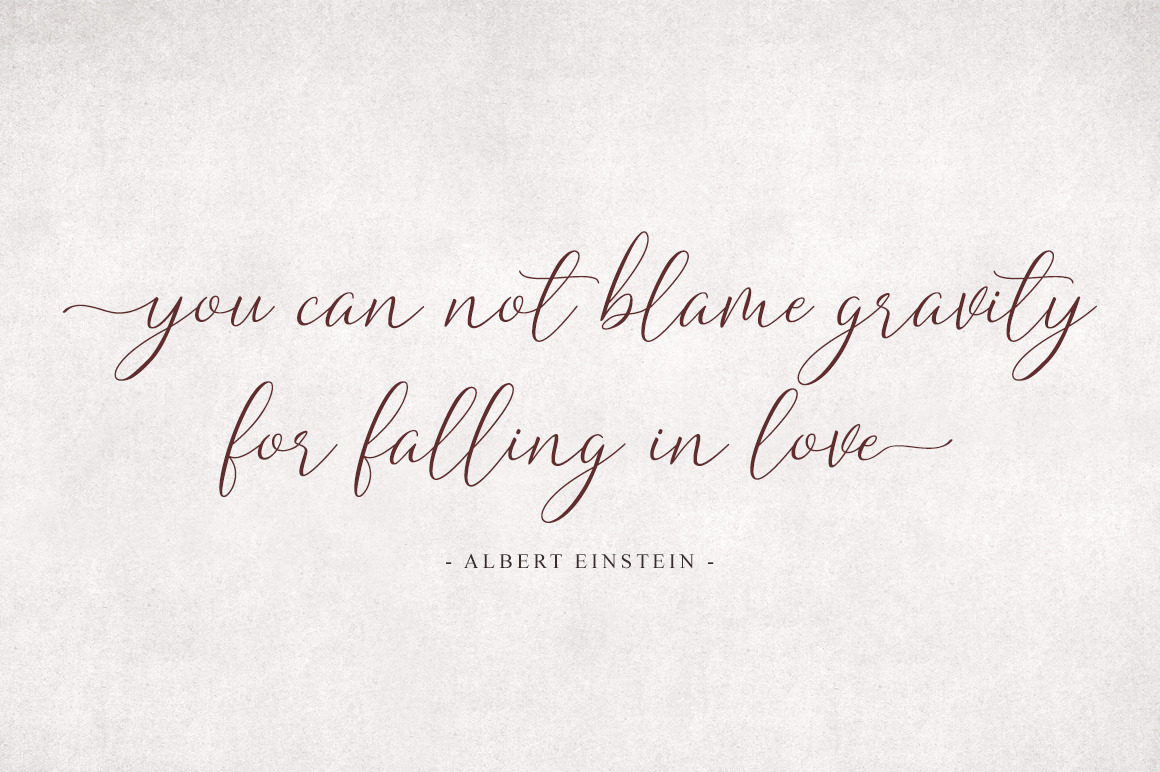 you can not blame gravity
for falling in love
- ALBERT EINSTEIN -